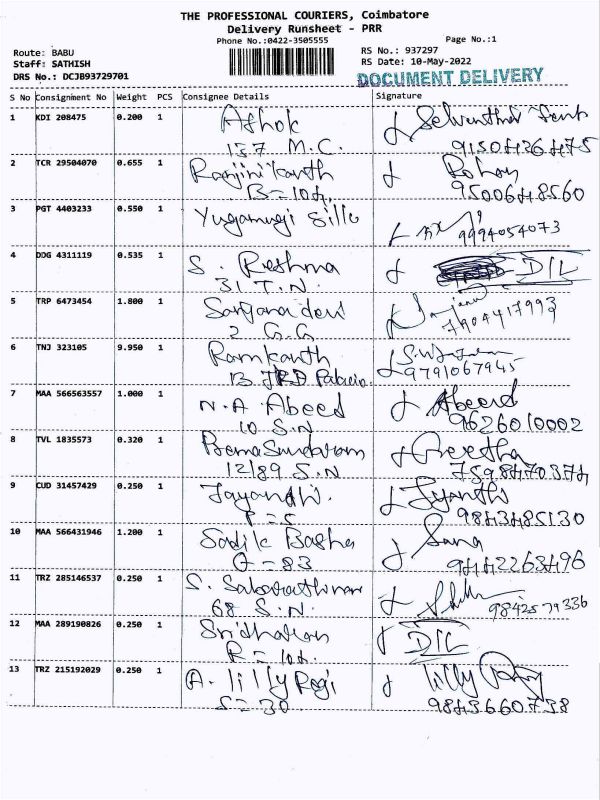 THE PROFESSIONAL COURIERS, Coimbatore
Delivery Runsheet - PRR
Phone No.:0422-3505555
Page No.:1
Route: BABU
RS No.: 937297
Staff: SATHISH
RS Date: 10-May-2022
DRS No.: DCJB93729701
DOCUMENT DELIVERY
S No Consignment No Weight PCS Consignee Details Signature
1 KDI 208475 0.200 1 Ashok
137 M.C. 9150426475
2 TCR 29504070 0.655 1 Ranjinikanth
B=104. 9500648560
3 PGT 4403233 0.550 1 Yugamugi Sille
9994054073
4 DDG 4311119 0.535 1 S. Reshma D/L
31 T.N.
5 TRP 6473454 1.800 1 Sanjana devi
2 G.G 7904417993
6 TNJ 323105 9.950 1 Ramkanth
13 9791067945
7 MAA 566563557 1.000 1 N.A Abeed Abeed
10 S.N 9626010002
8 TVL 1835573 0.320 1 PremaSundaram Preetha
12/89 S.N 7598470374
9 CUD 31457429 0.250 1 Jayandhi. Jyanthi
P=5 9843485130
10 MAA 566431946 1.200 1 Sadik Basha Sana
G=83 9442263496
11 TRZ 285146537 0.250 1 S. Sabarathinam
68 S.N. 9842579336
12 MAA 289190826 0.250 1 Sridharan D/L
R=104.
13 TRZ 215192029 0.250 1 A. lilly Regi lilly
S=30 9843660738